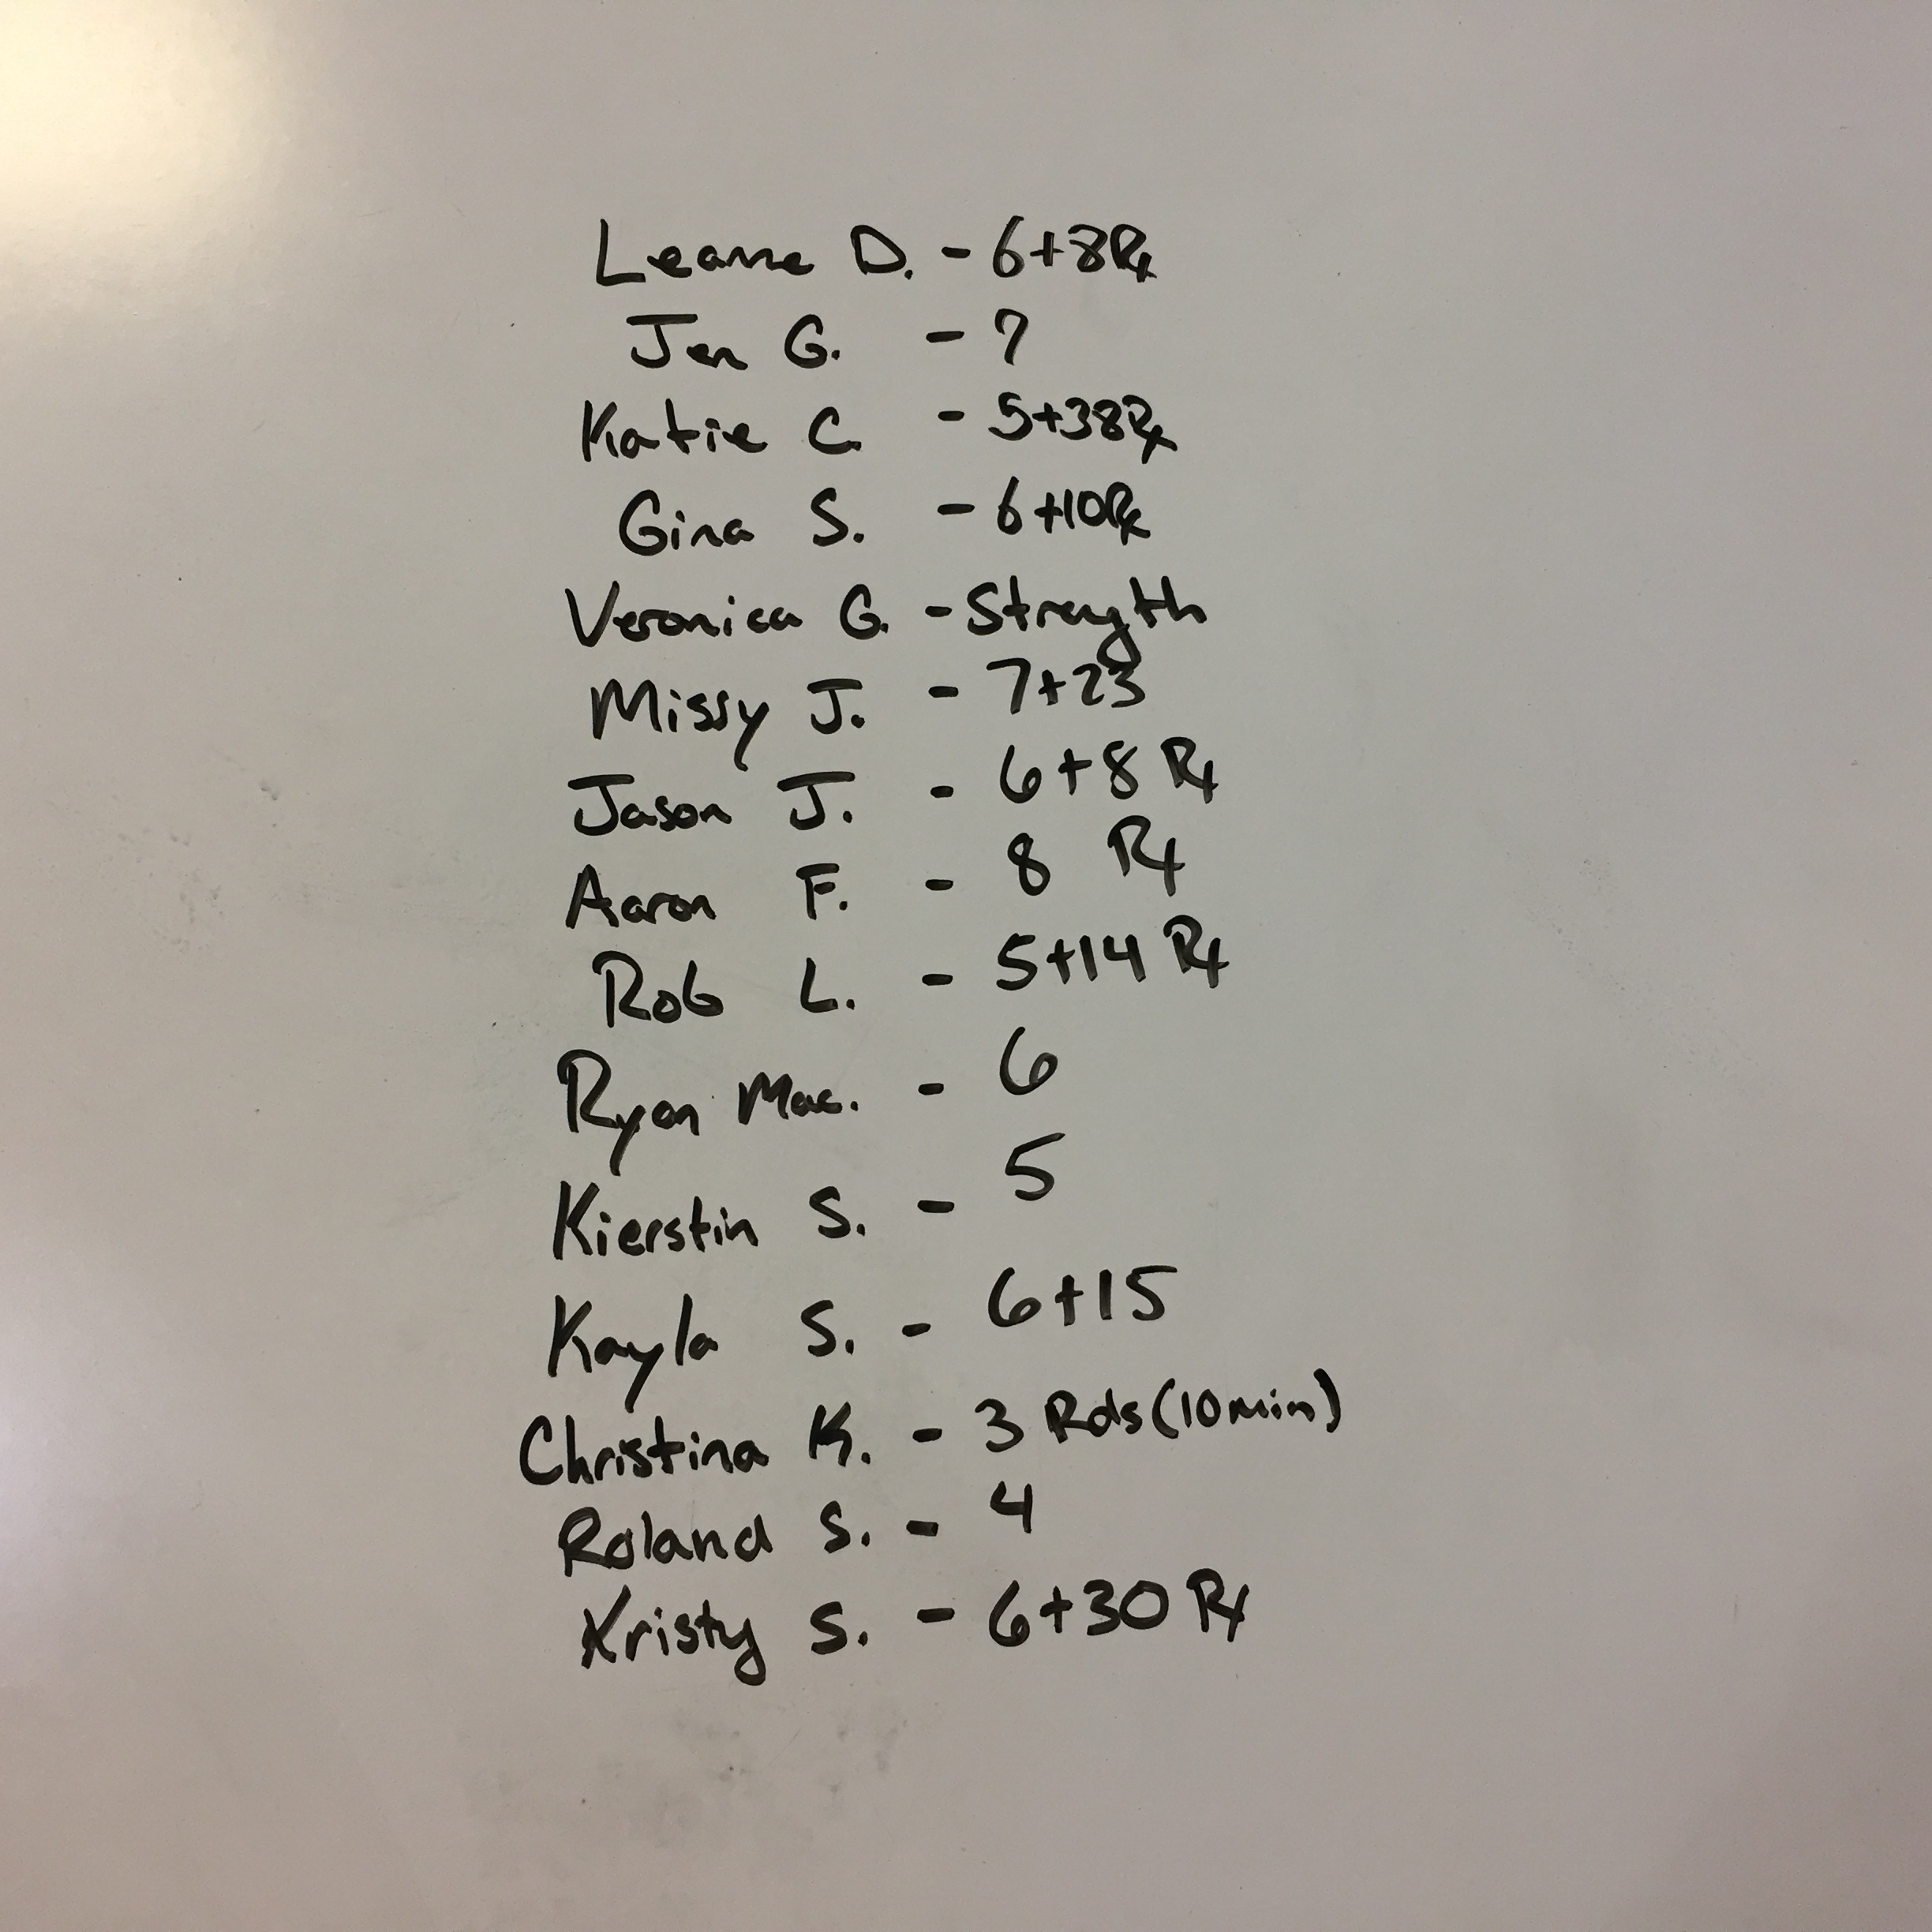 Leanne D. - 6+8Rx
Jen G. - 7
Katie C. - 5+38Rx
Gina S. - 6+10Rx
Veronica G. - Strength
Missy J. - 7+23
Jason J. - 6+8 Rx
Aaron F. - 8 Rx
Rob L. - 5+14 Rx
Ryan Mac. - 6
Kierstin S. - 5
Kayla S. - 6+15
Christina K. - 3 Rds (10min)
Roland S. - 4
Kristy S. - 6+30 Rx